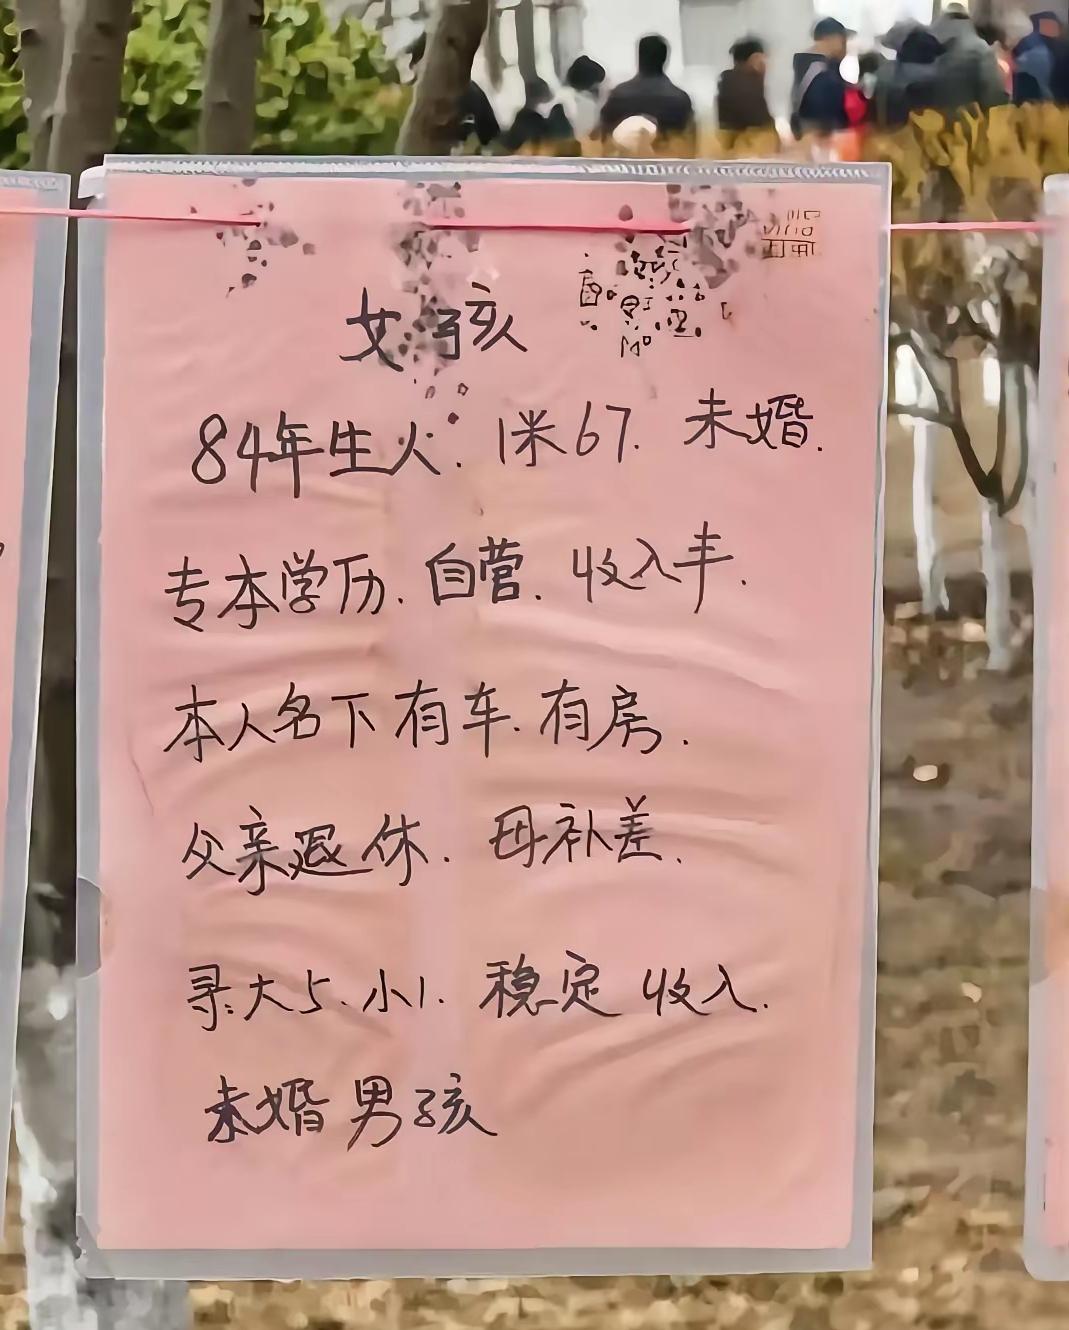 女孩
84年生人. 1米67. 未婚.
专本学历. 自营. 收入丰.
本人名下有车. 有房.
父亲退休. 母补差.
寻:大5、小1. 稳定收入.
未婚男孩